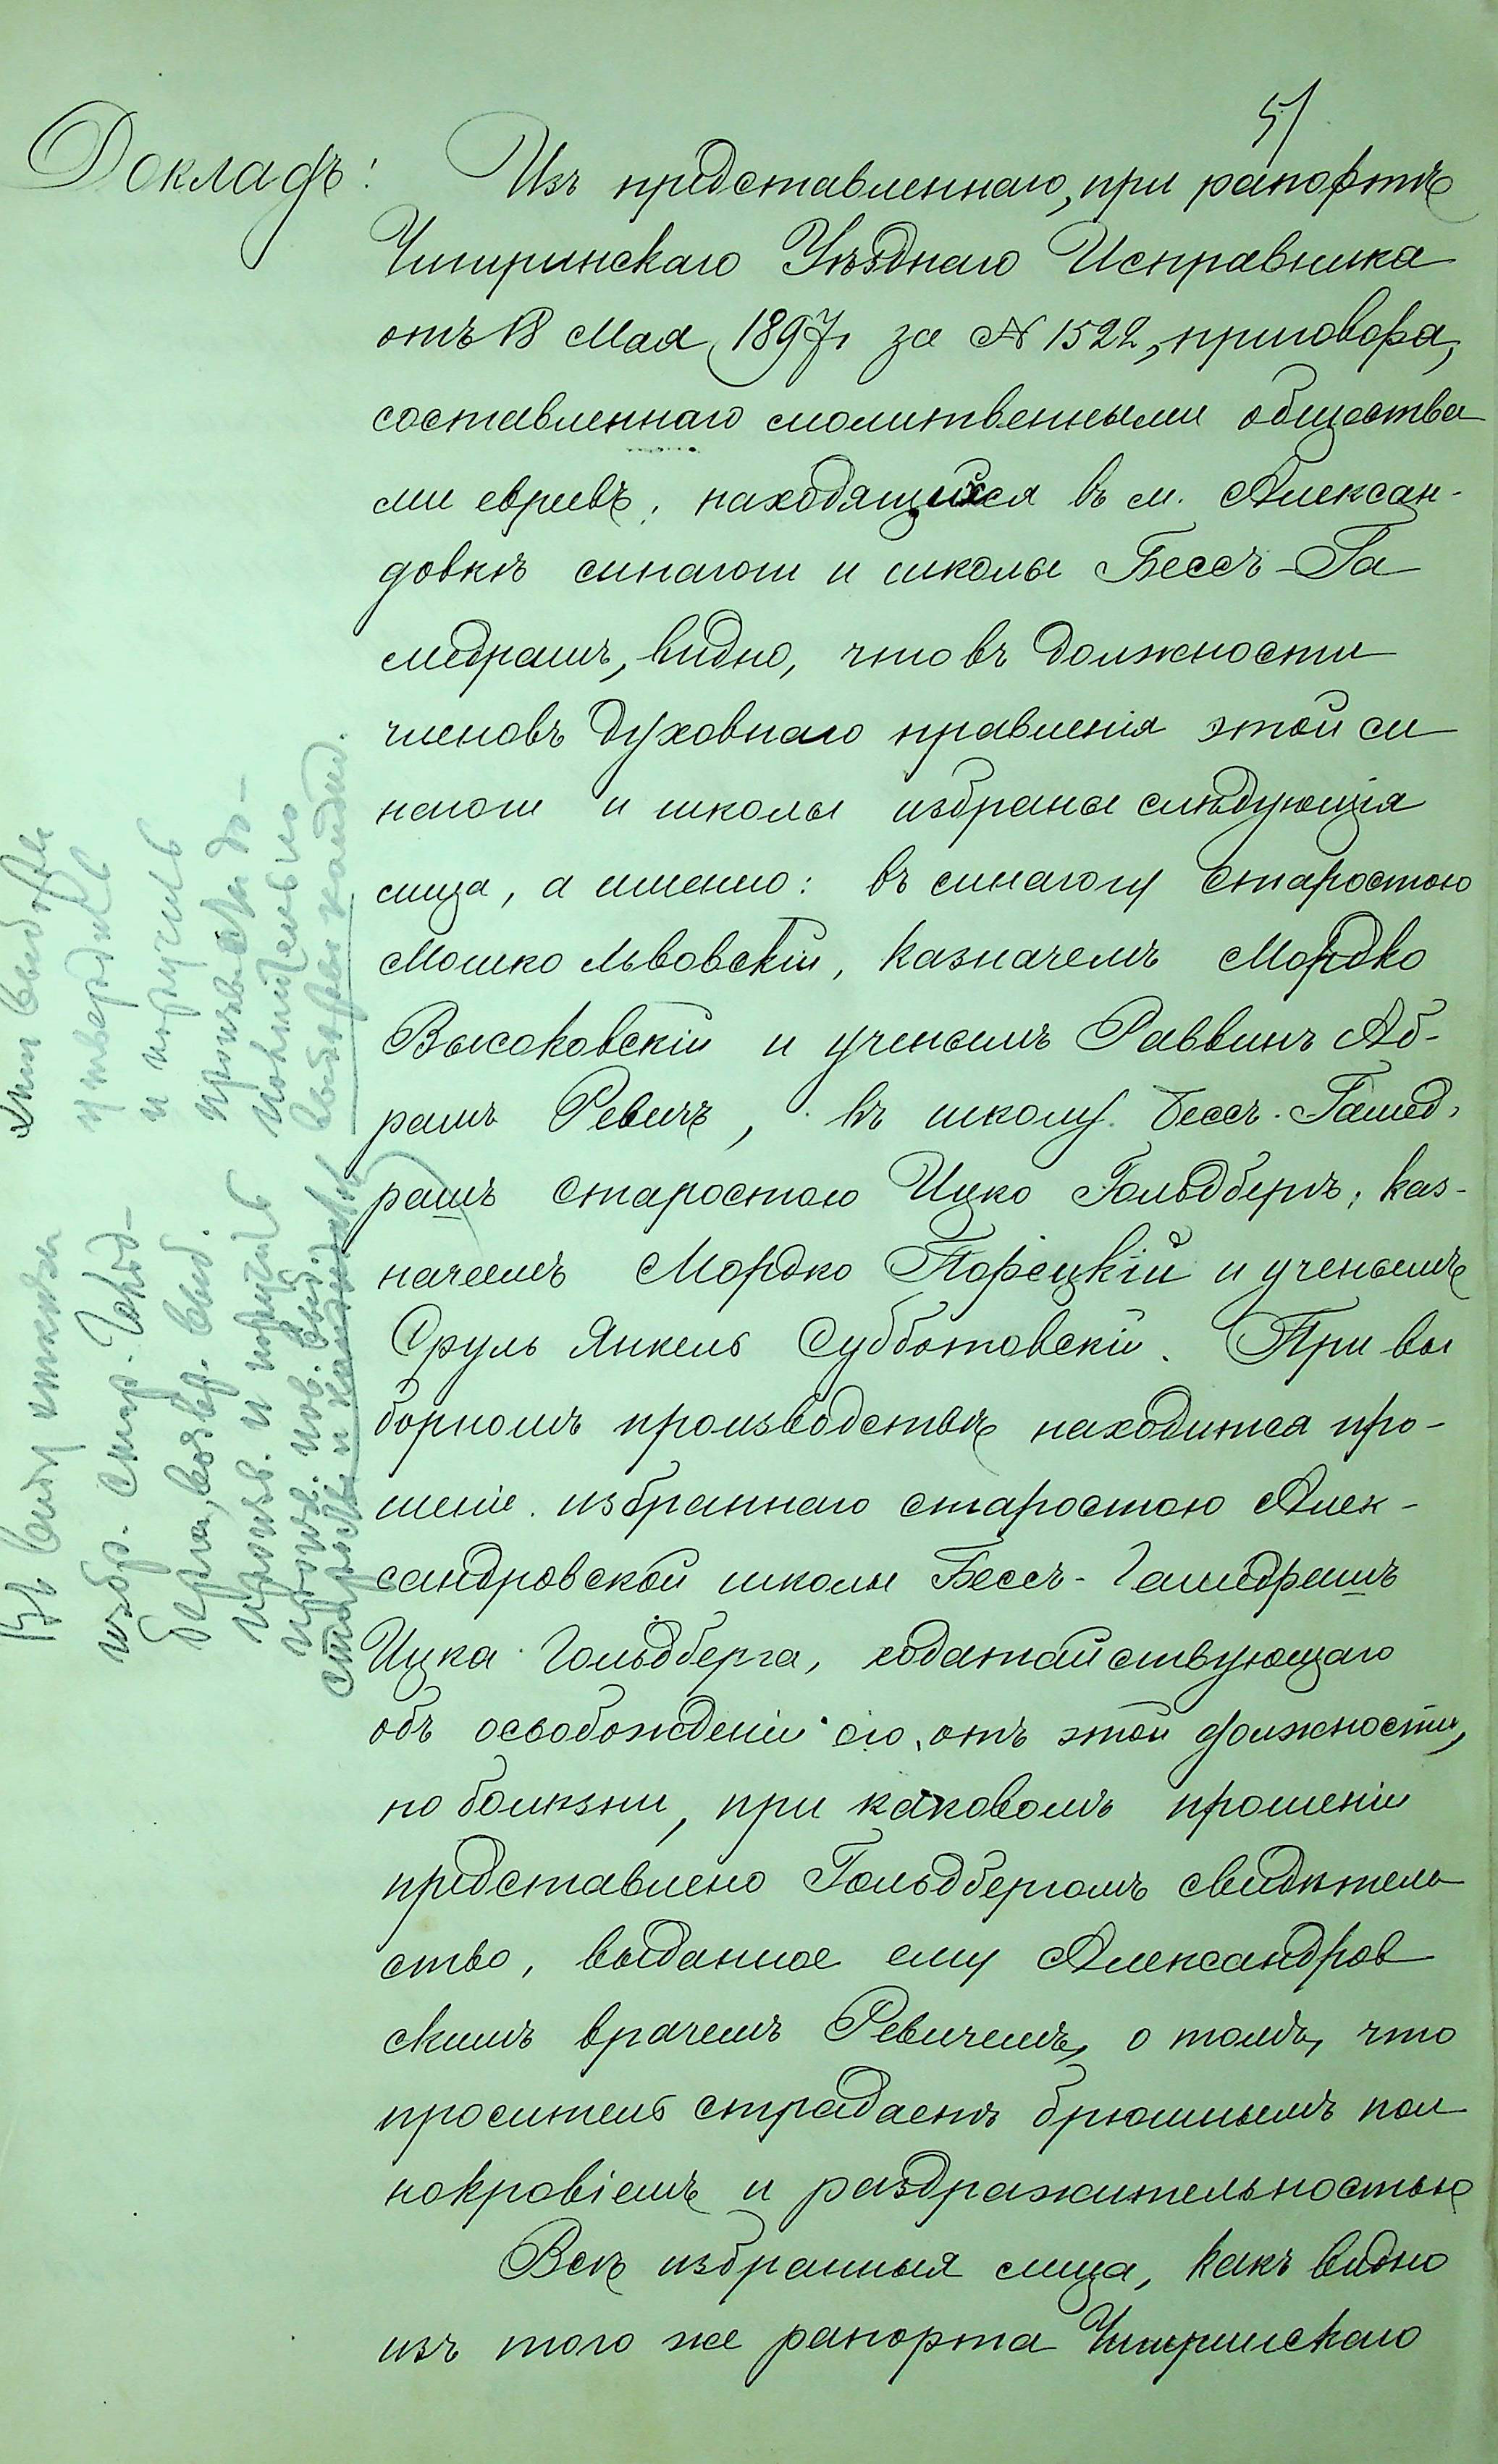 51
Докладъ:
Изъ представленнаго, при рапортѣ
Чигиринскаго Уѣзднаго Исправника
отъ 18 Мая 1897г. за № 1522, приговора,
составленнаго молитвенными общества
ми евреевъ, находящихся въ м. Алексан-
довкѣ синагоги и школы Бессъ-Га
медрашъ, видно, что въ должности
членовъ духовнаго правленія этой си
нагоги и школы избраны слѣдующія
лица, а именно: въ синагогу старостою
Мошко Львовскій, казначемъ Мордко
Высоковскій и ученымъ Раввинъ Аб-
рамъ Ревичъ, въ школу Бессъ-Гамед-
рашъ старостою Ицко Гольдбергъ, каз-
начеемъ Мордко Порецкій и ученымъ
Сруль Янкель Субботовскій. При вы
борномъ производствѣ находится про-
шеніе избраннаго старостою Алек-
сандровской школы Бессъ-Гамедрашъ
Ицка Гольдберга, ходатайствующаго
объ освобожденіи его отъ этой должности,
по болѣзни, при каковомъ прошеніи
представлено Гольдбергомъ свидѣтель
ство, выданное ему Александров
скимъ врачемъ Ревичемъ, о томъ, что
проситель страдаетъ брюшнымъ пол
нокровіемъ и раздражительностью
Всѣ избранныя лица, какъ видно
изъ того же рапорта Чигиринскаго
утвердить
и поручить
произвести до-
полнительно
выборы кандид.
Въ виду отказа
избр. стар. Гольд-
берга, возвр. выб.
произв. и поручить
произв. нов. выб.
старосты и кандидата